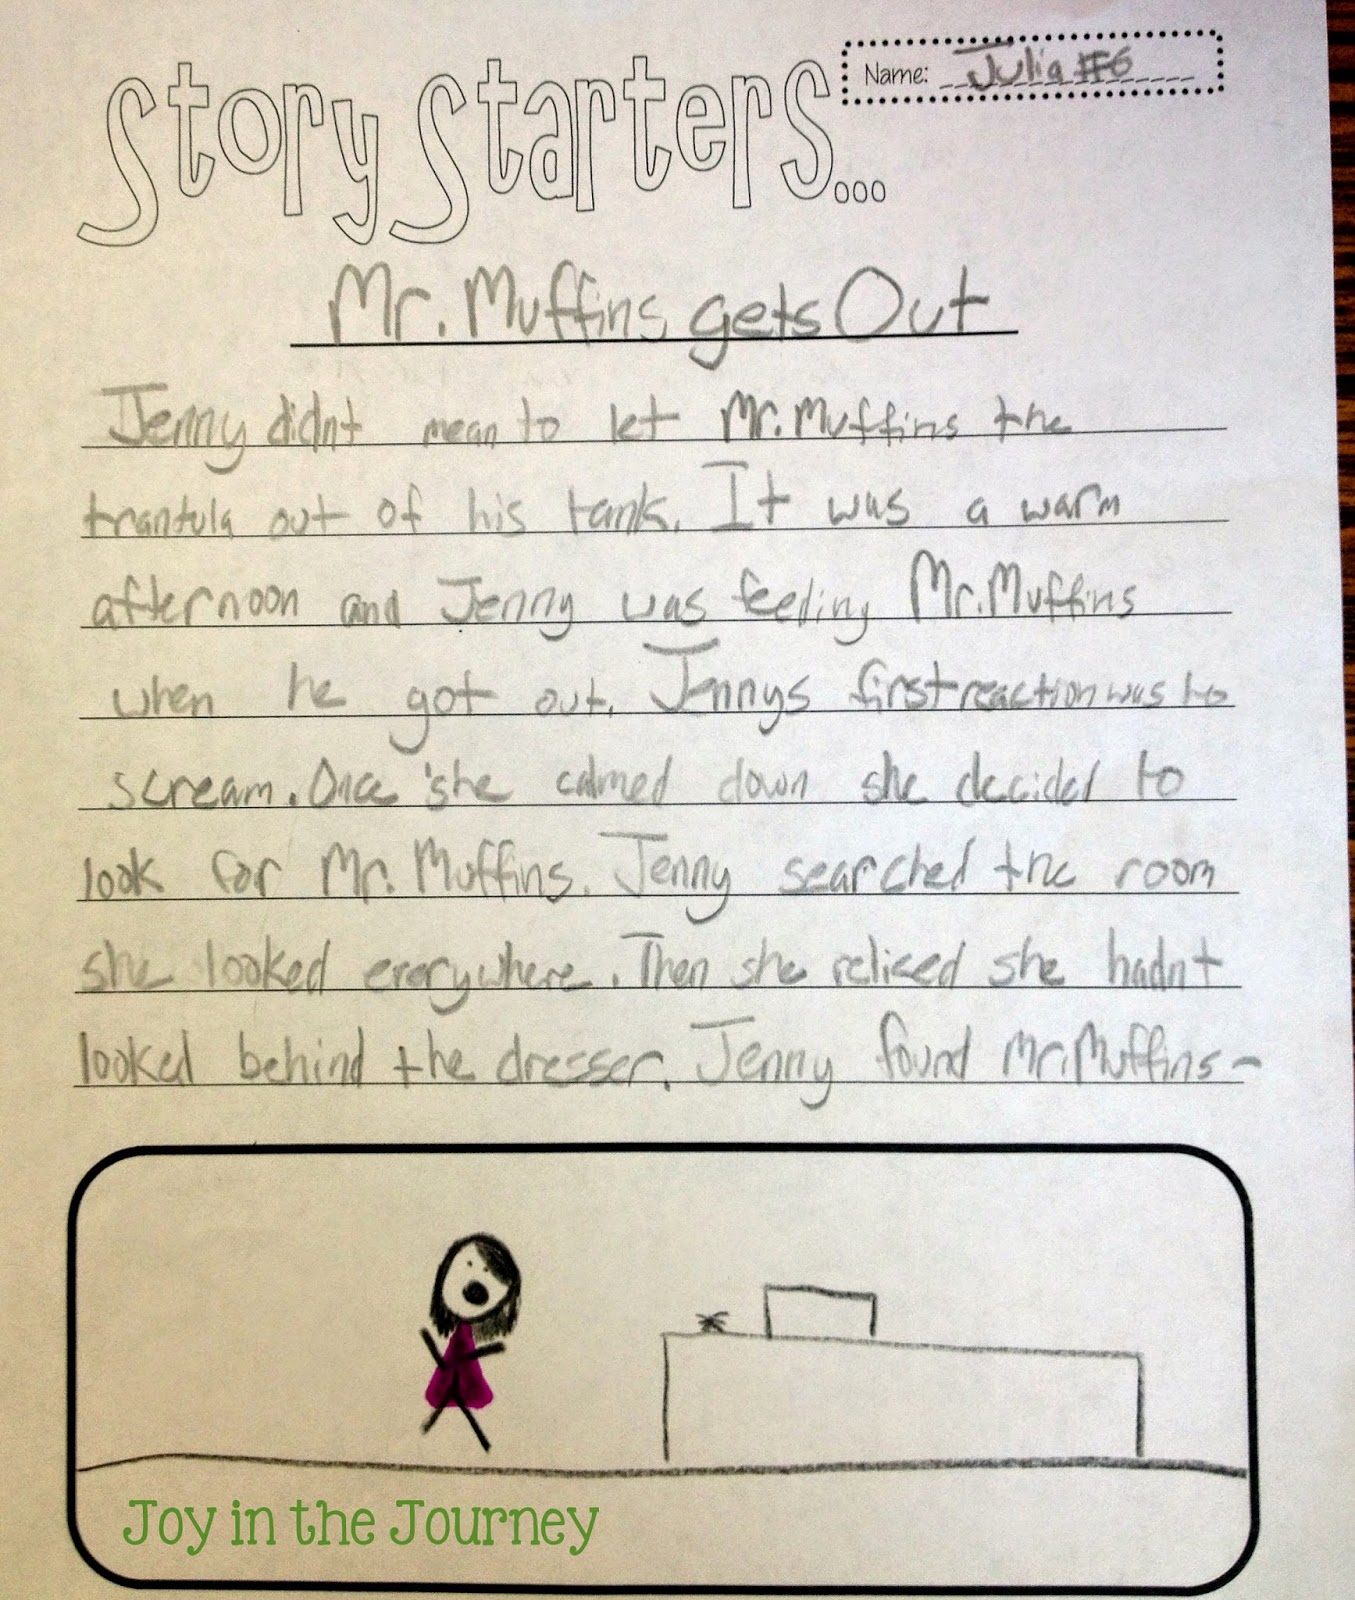 Story Starters...
Name: Julia #6
Mr. Muffins gets Out
Jenny didnt mean to let Mr. Muffins the
trantula out of his tank. It was a warm
afternoon and Jenny was feeding Mr. Muffins
when he got out. Jennys first reaction was to
scream. Once she calmed down she decided to
look for Mr. Muffins. Jenny searched the room
she looked everywhere. Then she reliced she hadnt
looked behind the dresser. Jenny found Mr. Muffins-
Joy in the Journey